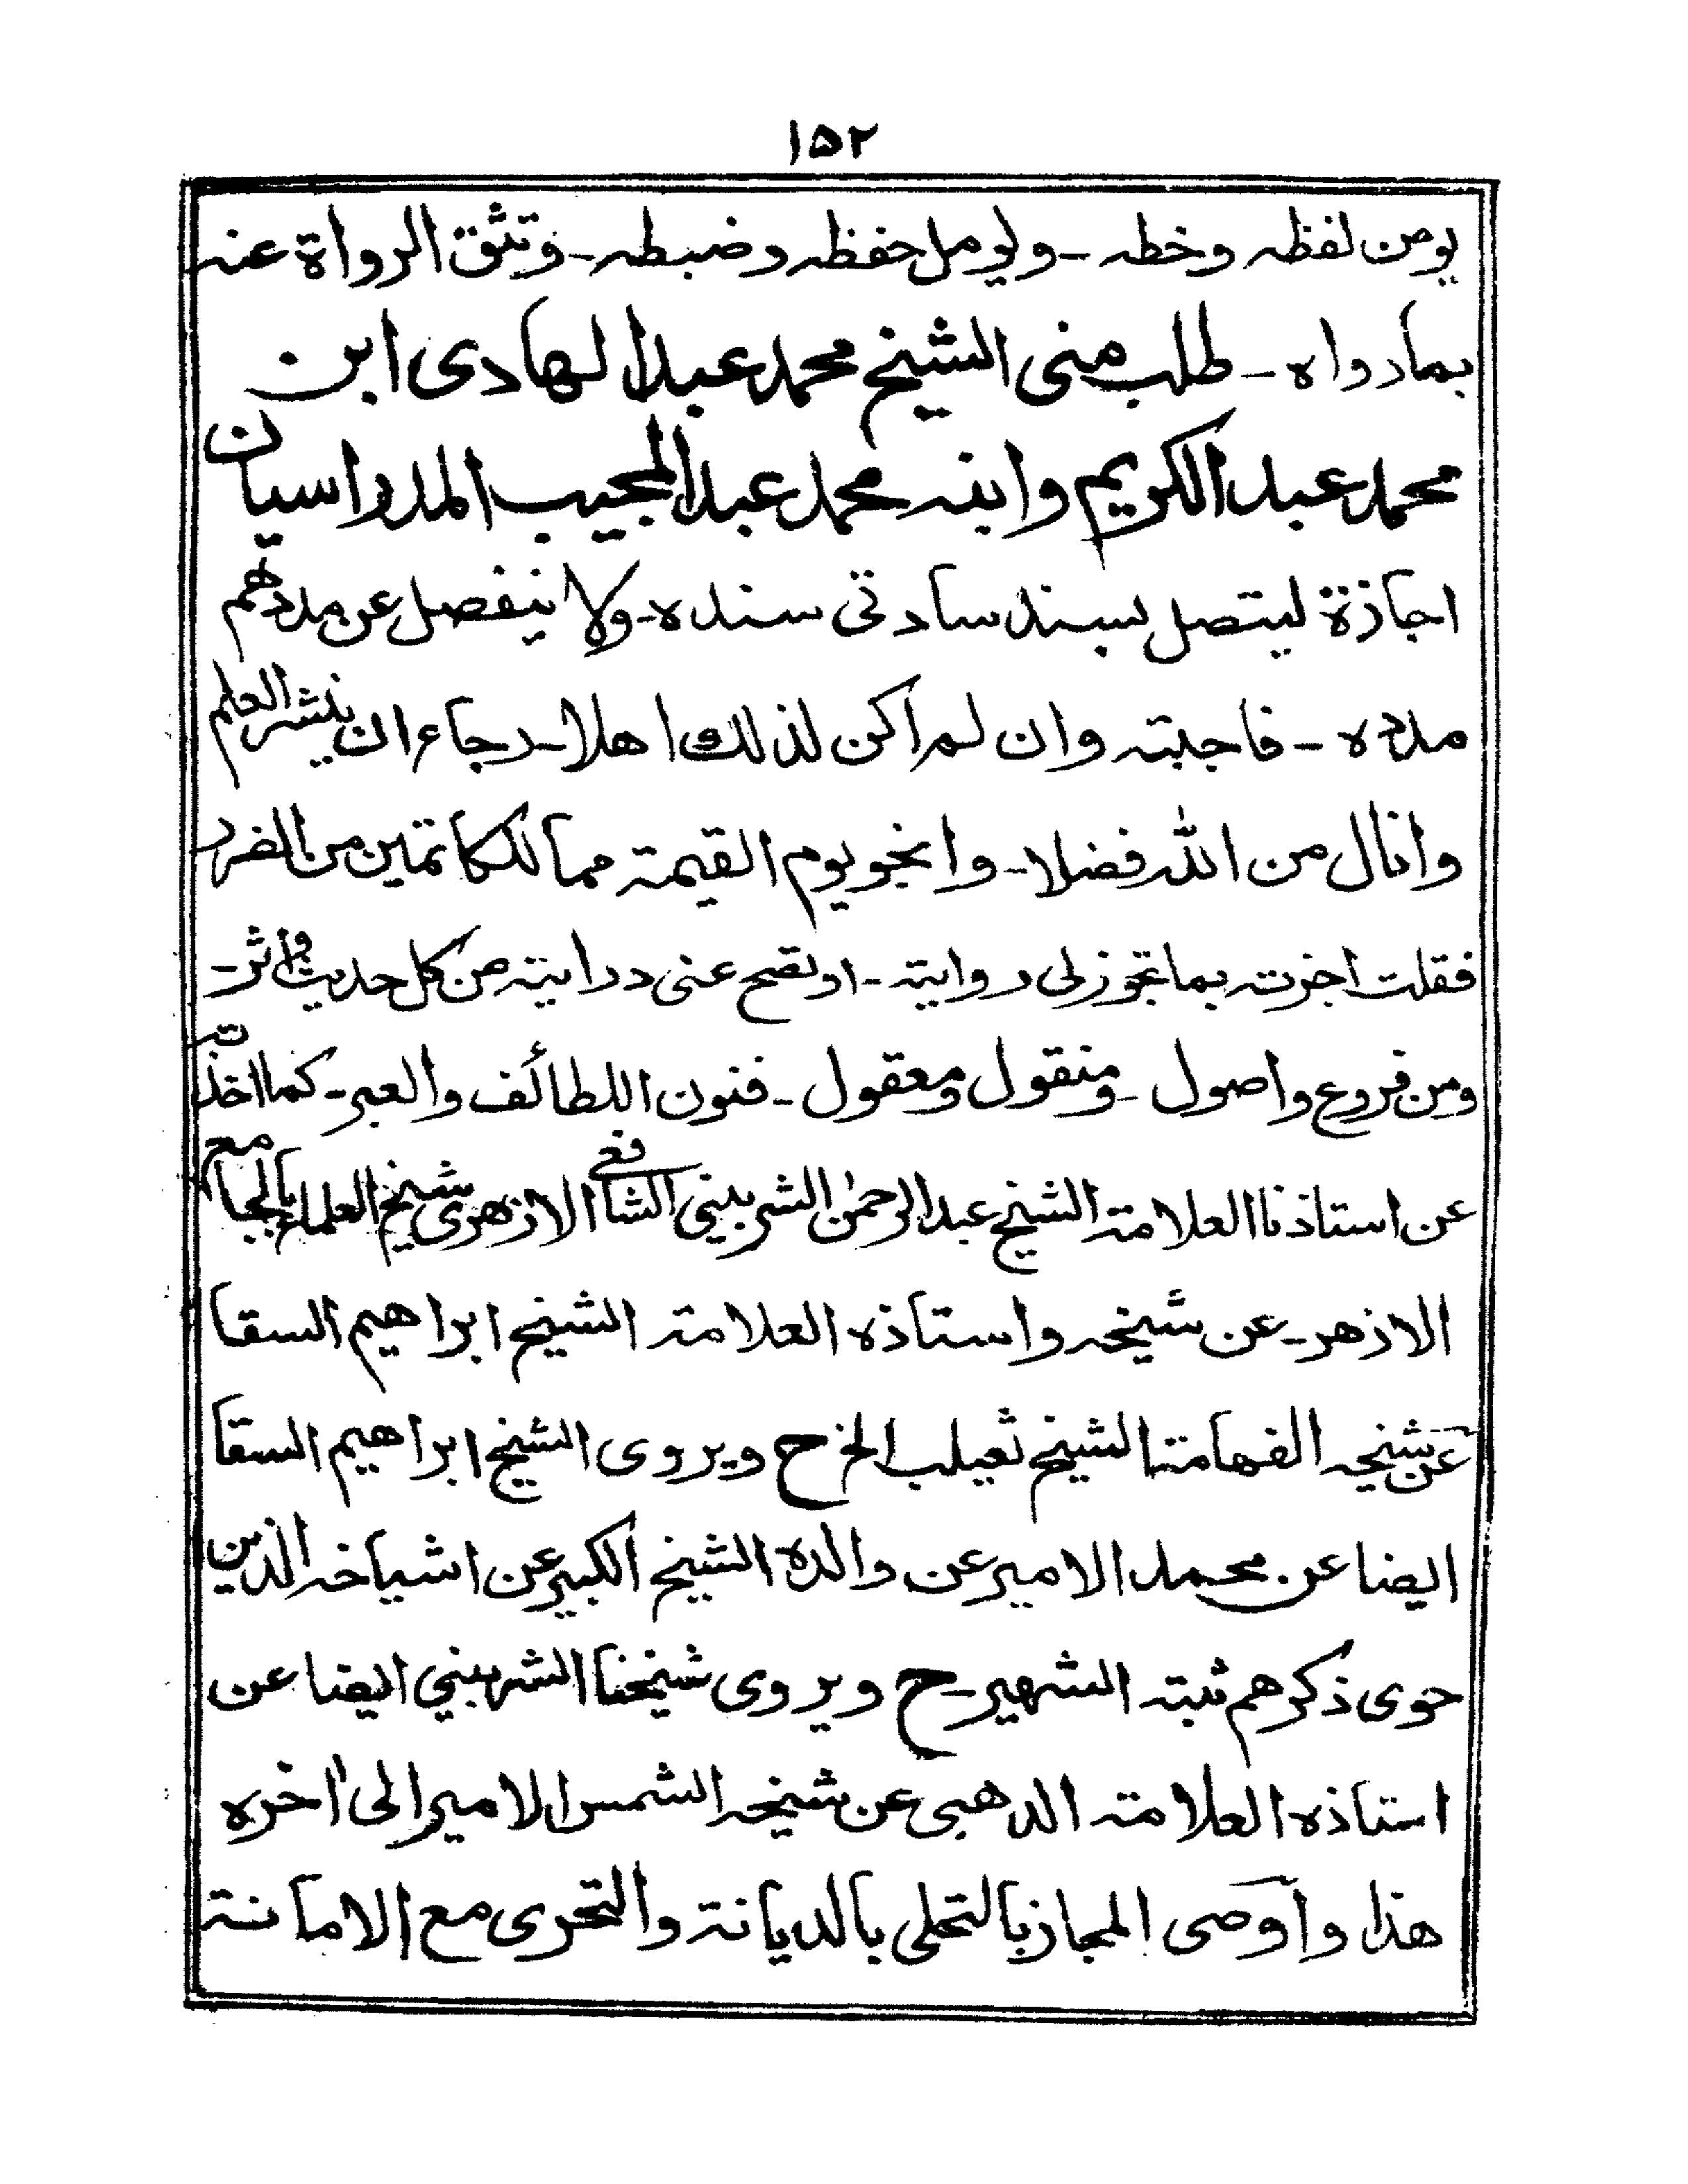 ١٥٢
يومن لفظه وخطه - ويومل حفظه وضبطه - وتثق الرواة عنه
بمارواه - طلب منى الشيخ محمد عبد الهادى ابن
محمد عبد الكريم وابنه محمد عبد المجيب المدراسيان
اجازة ليتصل بسند ساداتى سنده - ولا ينفصل عن مددهم
مدده - فاجبته وان لم اكن لذلك اهلا - رجاء ان ينشر العلم
وانال من الله فضلا - وانجو يوم القيمة مما للكاتمين من الضرر
فقلت اجزته بما تجوز لى روايته - او تصح عنى درايته من كل حديث واثر -
ومن فروع واصول - ومنقول ومعقول - فنون اللطائف والعبر - كما اخذته
عن استاذنا العلامة الشيخ عبد الرحمٰن الشربيني الشافعى الازهرى شيخ العلماء بالجامع
الازهر - عن شيخه واستاذه العلامة الشيخ ابراهيم السقا
عن شيخه الفهامة الشيخ ثعيلب الخ ح ويروى الشيخ ابراهيم السقا
ايضا عن محمد الامير عن والده الشيخ الكبير عن اشياخه الذين
حوى ذكرهم ثبته الشهير - ح ويروى شيخنا الشربيني ايضا عن
استاذه العلامة الذهبى عن شيخه الشمس الامير الى اخره
هذا وأوصى المجاز بالتحلى بالديانة والتحرى مع الامانة